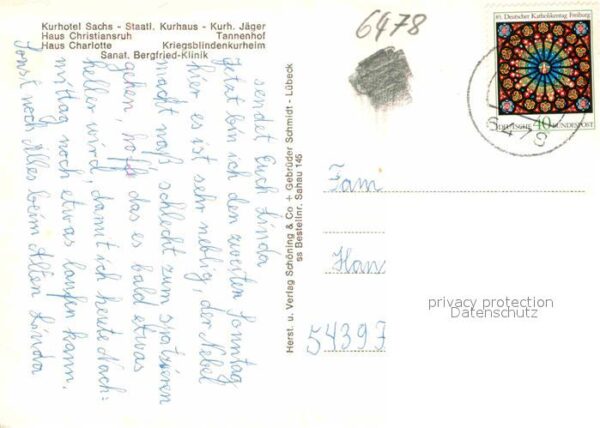 Kurhotel Sachs - Staatl. Kurhaus - Kurh. Jäger
Haus Christiansruh Tannenhof
Haus Charlotte Kriegsblindenkurheim
Sanat. Bergfried-Klinik
sendet Euch Linda
Jetzt bin ich den zweiten Sonntag
hier es ist sehr neblig, der Nebel
macht naß, schlecht zum spazieren
gehen, hoff das es bald etwas
heller wird, damit ich heute Nach-
mittag noch etwas laufen kann.
Sonst noch Alles beim Alten Linda
Herst. u. Verlag Schöning & Co + Gebrüder Schmidt - Lübeck
ss Bestellnr. Sahau 145
6478
85. Deutscher Katholikentag Freiburg
DEUTSCHE 40 BUNDESPOST
Fam
Han
54397
privacy protection
Datenschutz